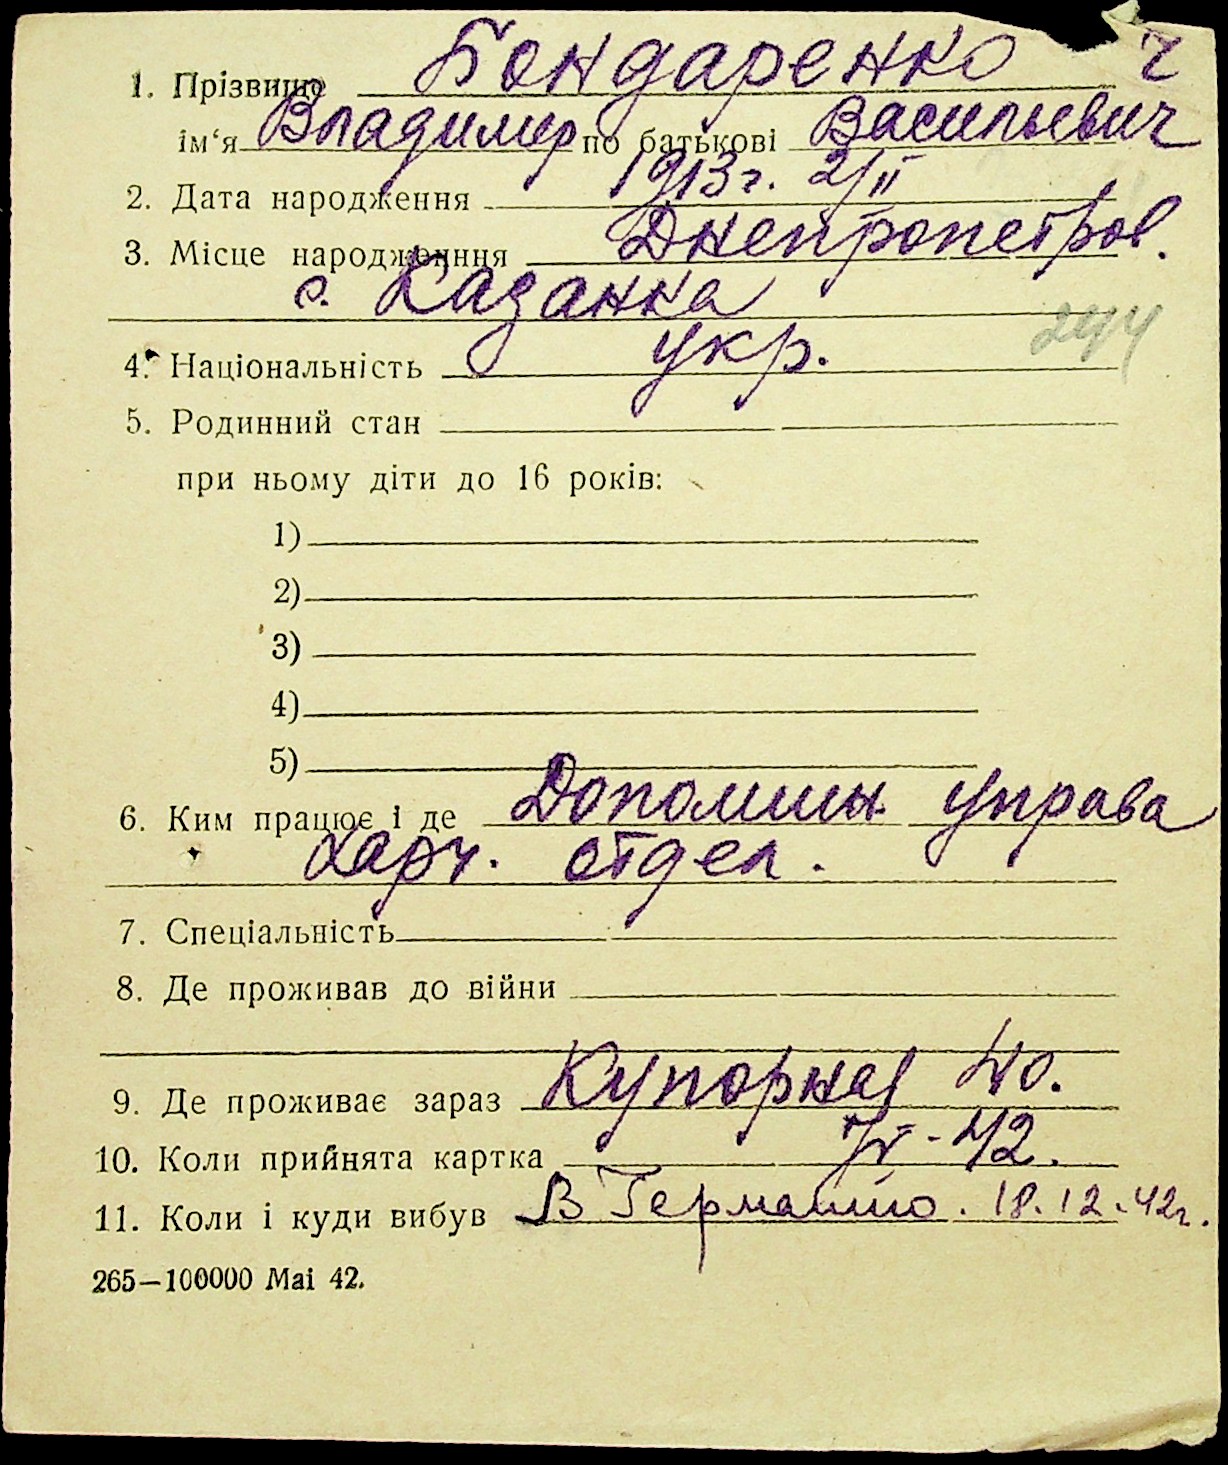 1. Прізвище Бондаренко ч
ім‘я Владимир по батькові Васильевич
2. Дата народження 1913 г. 2/II
3. Місце народженння Днепропетров.
с. Казанка
4. Національність укр.
244
5. Родинний стан
при ньому діти до 16 років:
1)
2)
3)
4)
5)
6. Ким працює і де Допомижн. управа
Харч. отдел.
7. Спеціальність
8. Де проживав до війни
9. Де проживає зараз Купорная 40.
10. Коли прийнята картка IV-42.
11. Коли і куди вибув В Германию. 18.12.42г.
265—100000 Mai 42.